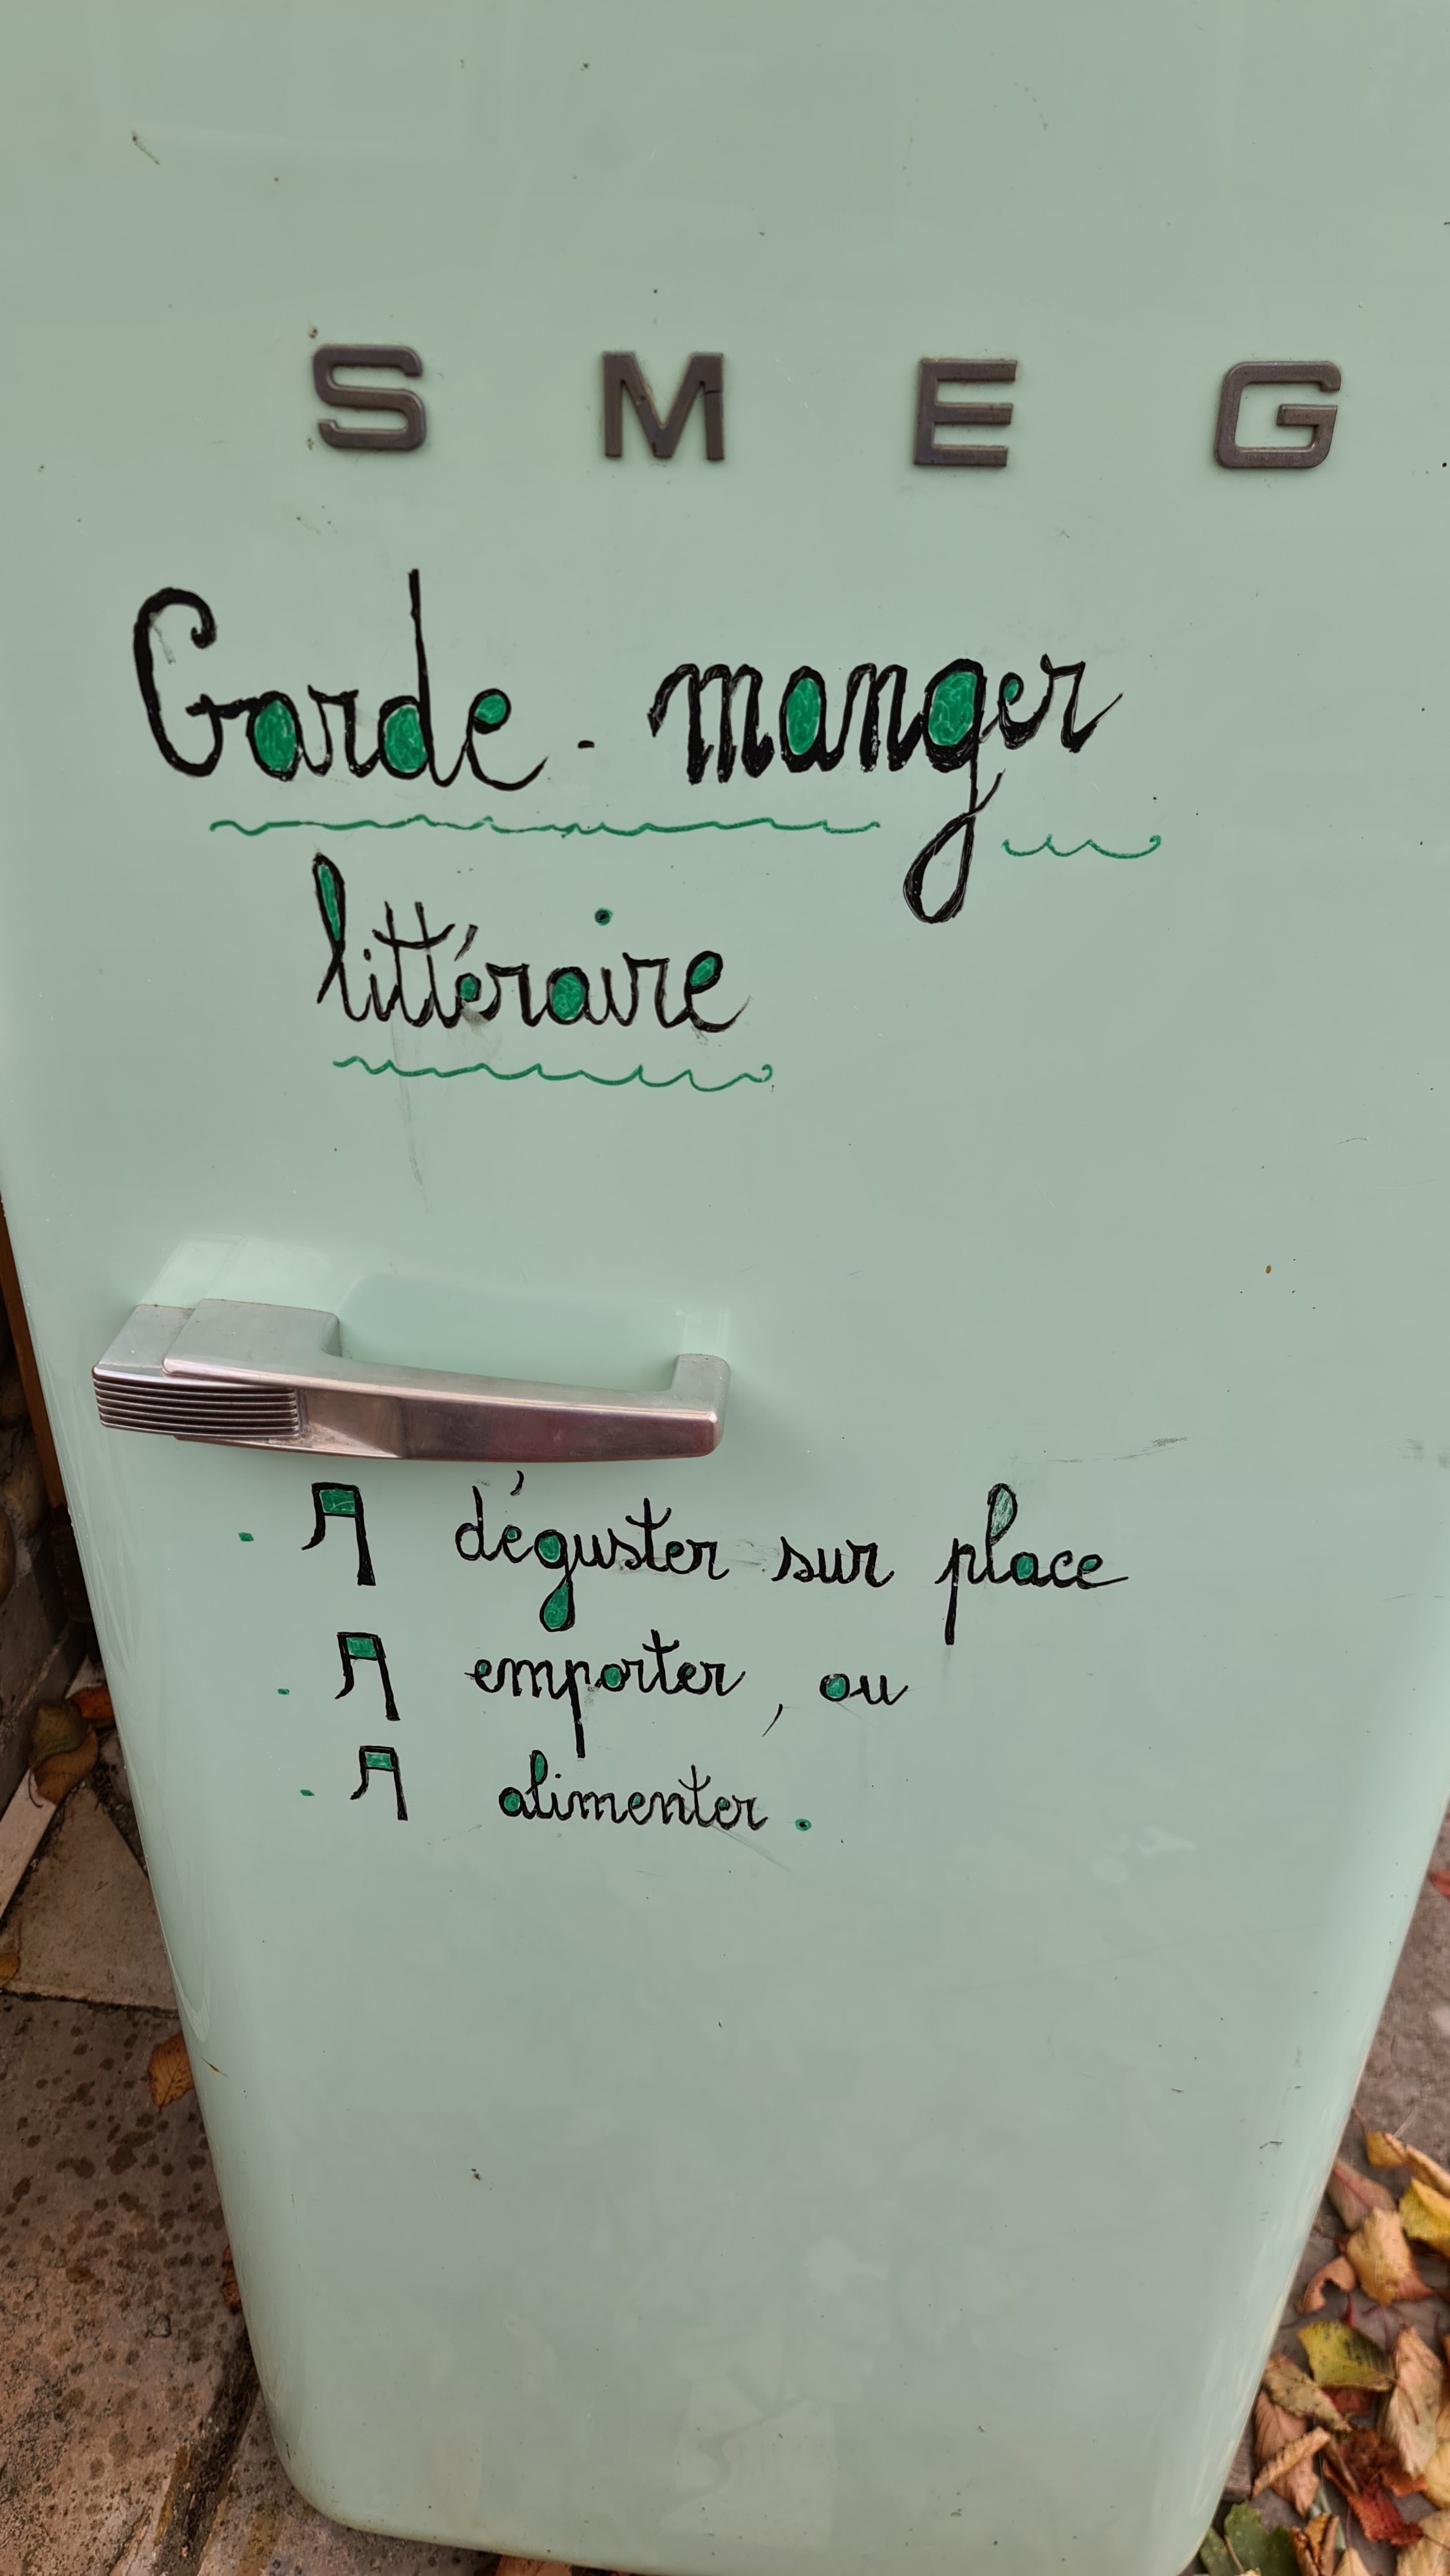 SMEG
Garde-manger
littéraire
· A déguster sur place
· A emporter, ou
· A alimenter.